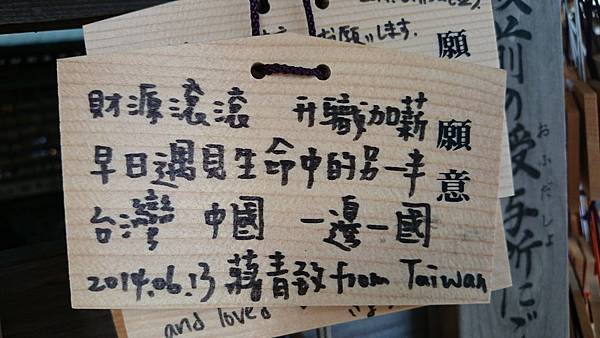 財源滾滾 升職加薪
早日遇見生命中的另一半
台灣 中國 一邊一國
2014.06.13 蔣青致 from Taiwan
願意
願
お願いします.
and loved
女前の授与所にご
おふだしょ